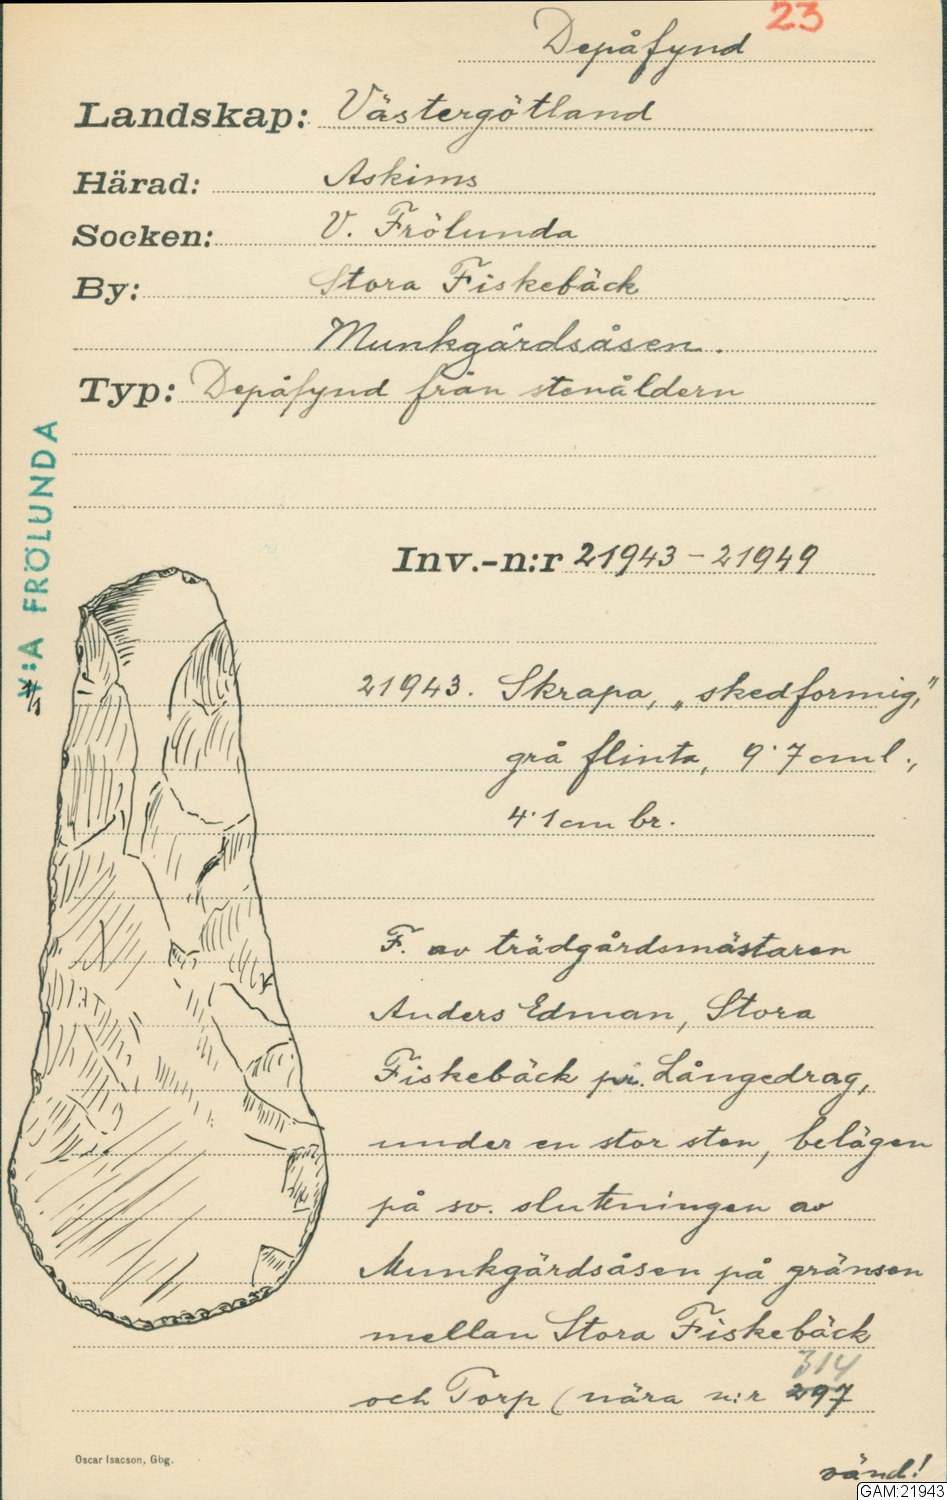 23
Depåfynd
Landskap: Västergötland
Härad: Askims
Socken: V. Frölunda
By: Stora Fiskebäck
Munkgärdsåsen.
Typ: Depåfynd från stenåldern
V:A FRÖLUNDA
Inv.-n:r 21943-21949
1/1
21943. Skrapa, „skedformig,"
grå flinta, 9·7 cm l.,
4·1 cm br.
F. av trädgårdsmästaren
Anders Edman, Stora
Fiskebäck pr. Långedrag,
under en stor sten, belägen
på sv. sluttningen av
Munkgärdsåsen på gränsen
mellan Stora Fiskebäck
314
och Torp (nära n:r 297
Oscar Isacson, Gbg.
vänd!
GAM:21943